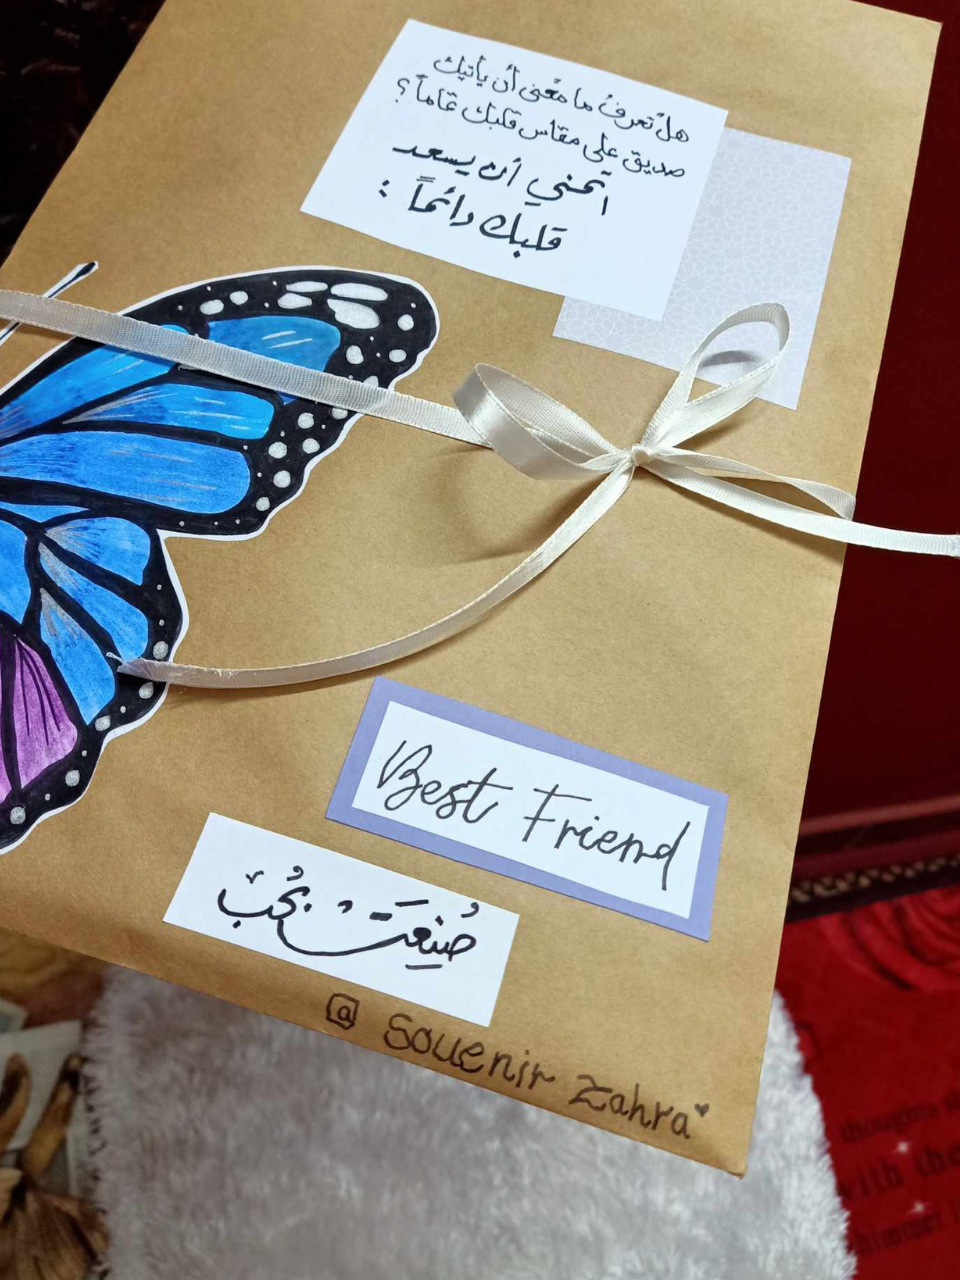 هل تعرف ما معنى أن يأتيك
صديق على مقاس قلبك تماماً ؟
أتمنى أن يسعد
قلبك دائماً :
Best Friend
صُنِعَت بحُبّ
@ Souenir Zahra
thoughts
with the
shimmer